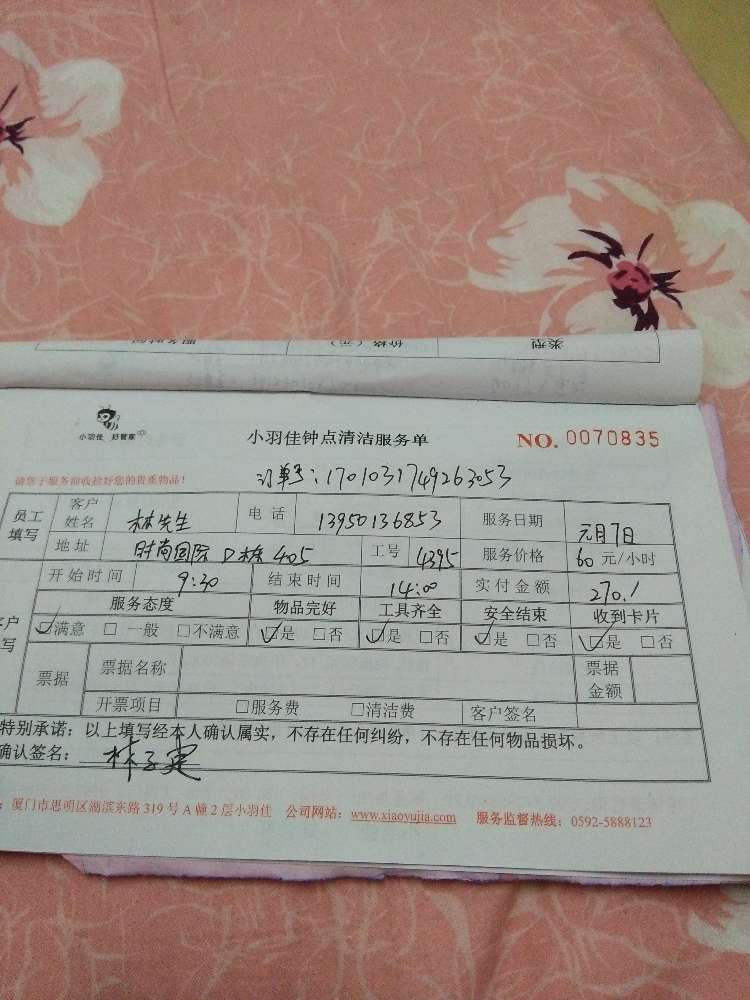 类型 价格（元） 服务时间
小羽佳 好管家
小羽佳钟点清洁服务单 NO. 0070835
请您于服务前收捡好您的贵重物品！ 订单号：1701031749263053
员工填写 客户姓名 林先生 电话 13950136853 服务日期 元月7日
地址 时尚国际D栋405 工号 4395 服务价格 60元/小时
开始时间 9:30 结束时间 14:00 实付金额 270.1
服务态度 物品完好 工具齐全 安全结束 收到卡片
☑满意 □一般 □不满意 ☑是 □否 ☑是 □否 ☑是 □否 ☑是 □否
票据 票据名称 票据金额
开票项目 □服务费 □清洁费 客户签名
特别承诺：以上填写经本人确认属实，不存在任何纠纷，不存在任何物品损坏。
确认签名：
厦门市思明区湖滨东路319号A幢2层小羽佳 公司网站：www.xiaoyujia.com 服务监督热线：0592-5888123